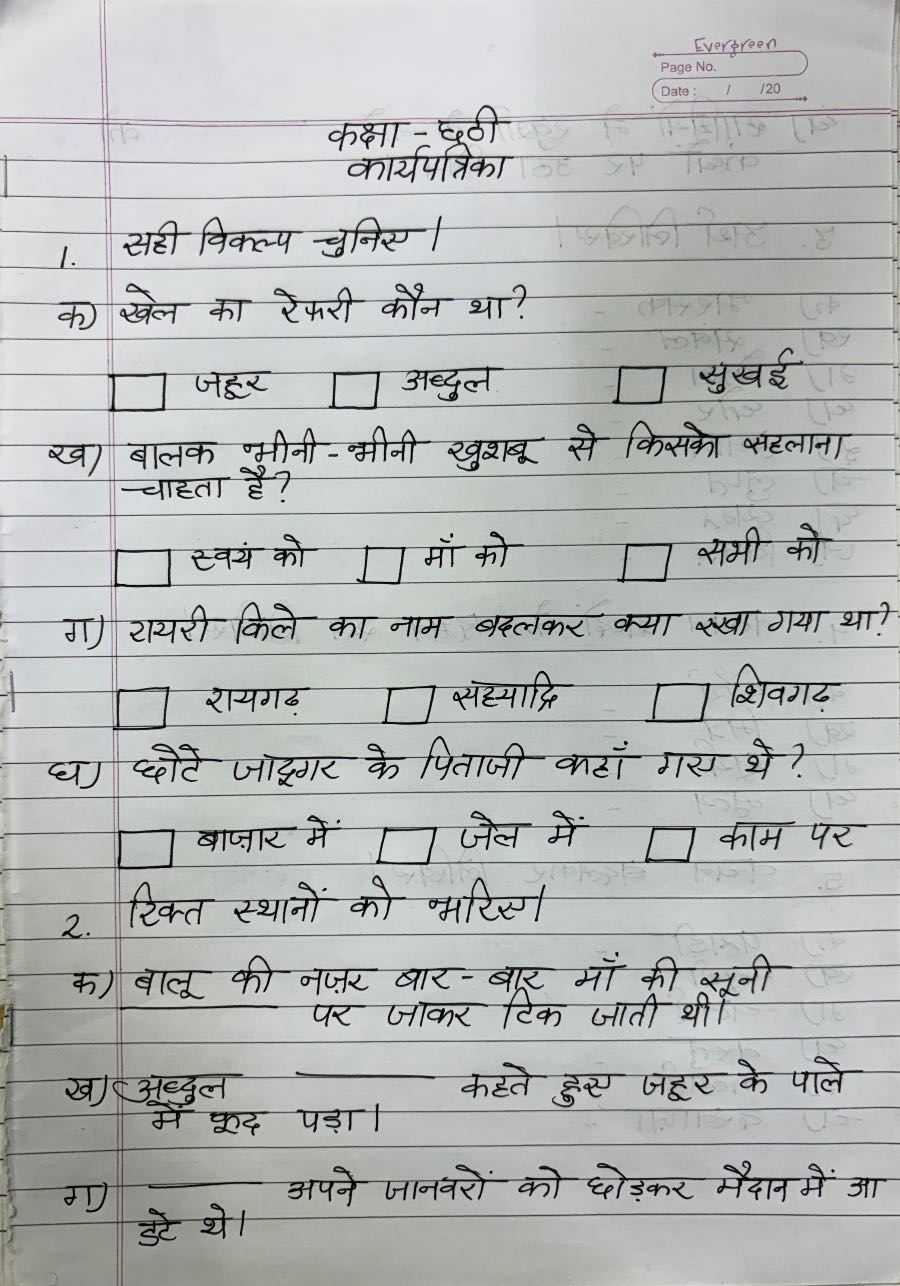 Evergreen
Page No.
Date : / /20
कक्षा - छठी
कार्यपत्रिका
1. सही विकल्प चुनिए।
क) खेल का रेफरी कौन था?
जहूर अब्दुल सुखई
ख) बालक भीनी-भीनी खुशबू से किसको सहलाना
चाहता है?
स्वयं को माँ को सभी को
ग) रायरी किले का नाम बदलकर क्या रखा गया था?
रायगढ़ सह्याद्रि शिवगढ़
घ) छोटे जादूगर के पिताजी कहाँ गए थे?
बाज़ार में जेल में काम पर
2. रिक्त स्थानों को भरिए।
क) बालू की नज़र बार-बार माँ की सूनी
________ पर जाकर टिक जाती थी।
ख) अब्दुल ________ कहते हुए जहूर के पाले
में कूद पड़ा।
ग) ________ अपने जानवरों को छोड़कर मैदान में आ
डटे थे।